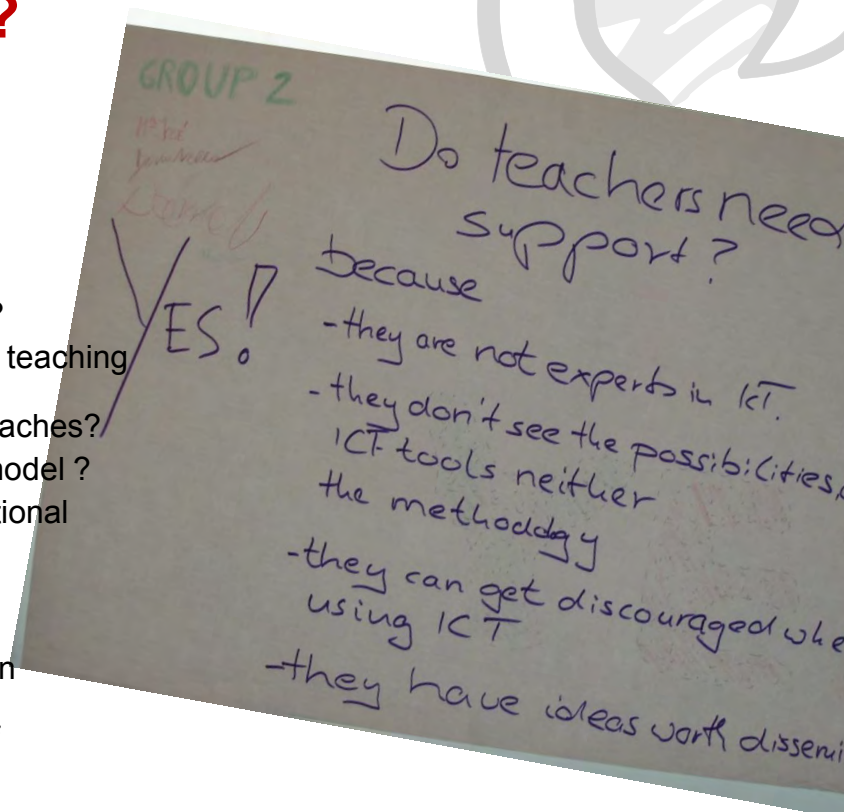 ?
?
teaching
aches?
nodel ?
tional
n
GROUP 2
Do teachers need
support?
YES!
because
-they are not experts in ICT.
-they don't see the possibilities,
ICT tools neither
the methodology
-they can get discouraged whe
using ICT
-they have ideas worth dissemi